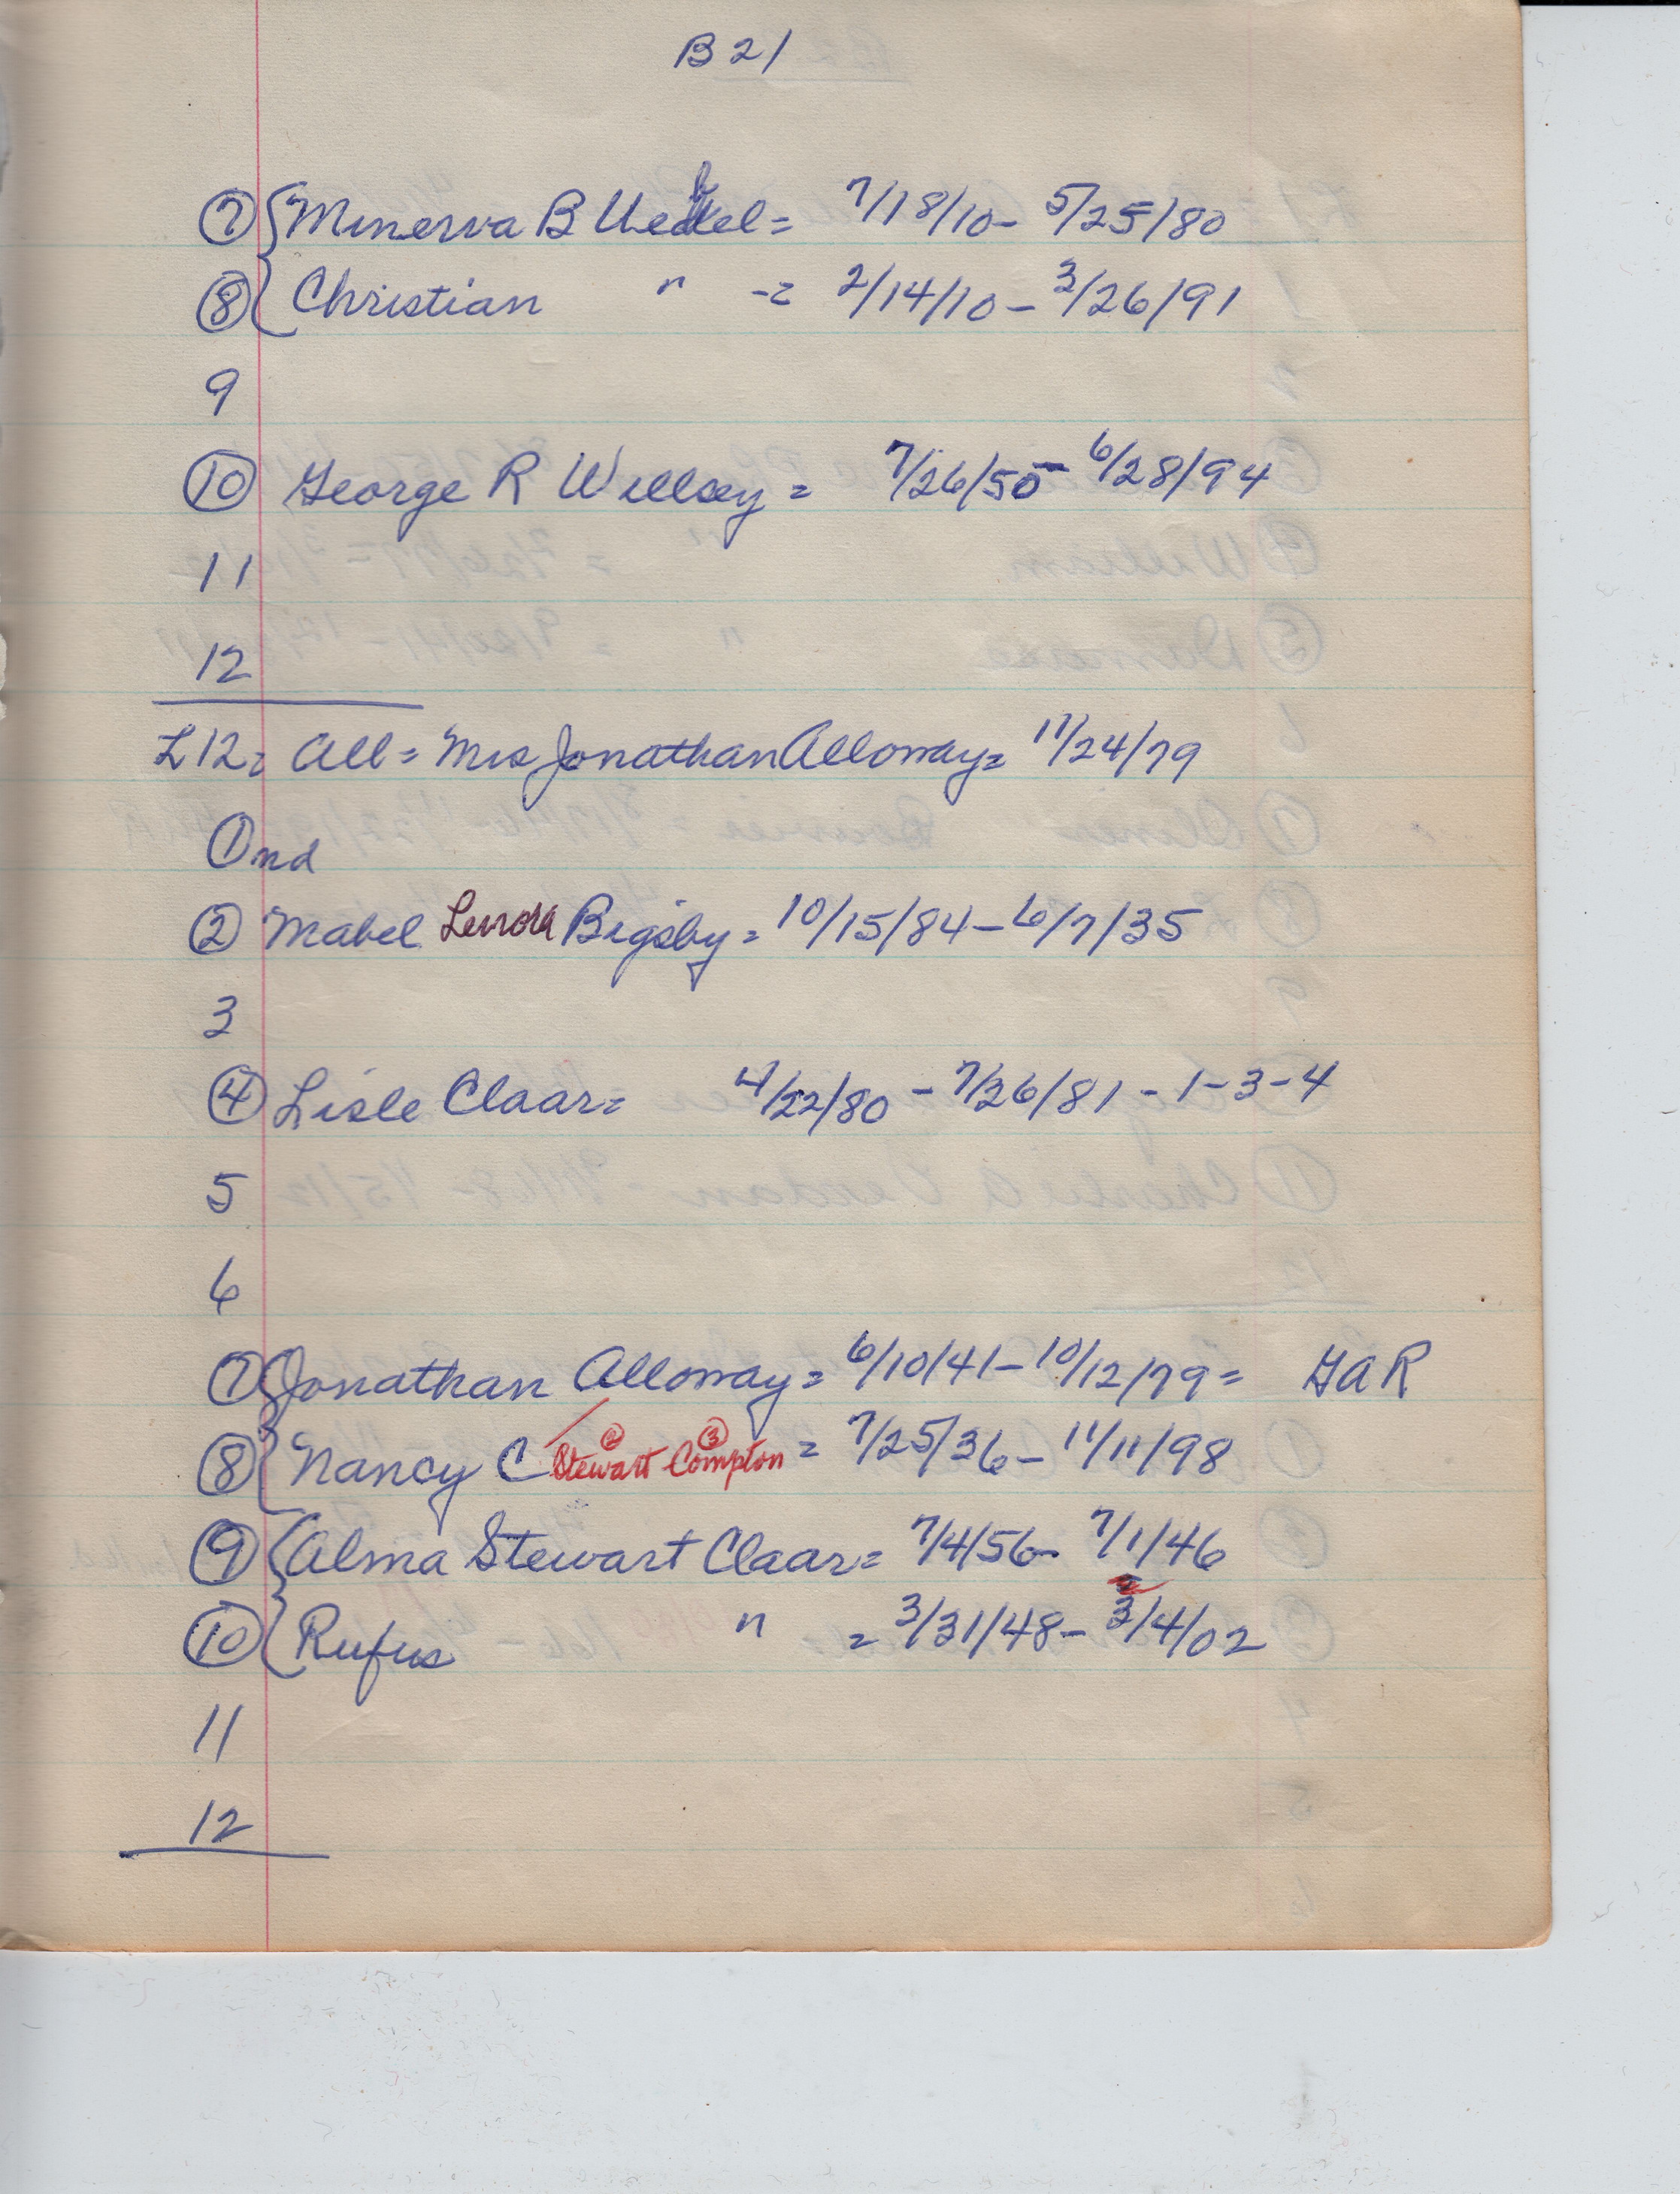 B 21
⑦ Minerva B = 7/18/10 - 5/25/80
⑧ Christian " -= 2/14/10 - 3/26/91
9
⑩ George R Willsey = 7/26/50 - 6/28/94
11
12
L12= All = Mrs Jonathan Alloway = 11/24/79
① nd
② Mabel Lenora Bigsby = 10/15/84 - 6/7/35
3
④ Lisle Claar = 4/22/80 - 7/26/81 - 1-3-4
5
6
⑦ Jonathan Alloway = 6/10/41 - 10/12/79 = GAR
⑧ Nancy C / Stewart ② Compton ③ = 7/25/36 - 11/11/98
⑨ Alma Stewart Claar = 7/4/56 - 7/1/46
⑩ Rufus " = 3/31/48 - 3/4/02
11
12